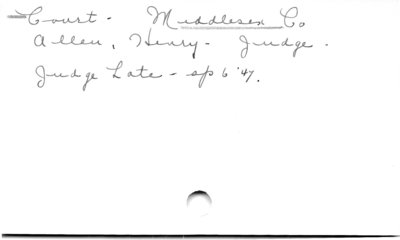 Court - Middlesex Co
Allen, Henry - Judge -
Judge Late - ap 6 '47.